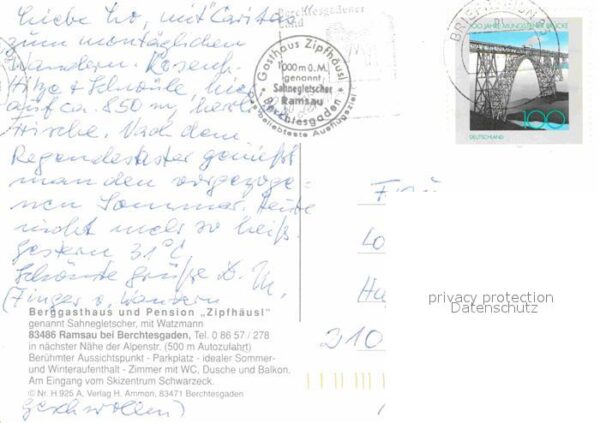 Liebe Lo, mit Caritas
zum montäglichen
Wandern. Rosenh.
Hitze + Schwüle, hier
auf ca. 850 m, herrl.
Frische. Nach dem
genießt
man den vorgezoge-
nen Sommer. Heute
nicht mehr so heiß.
gestern 31°C
Schönste Grüße D. M.
(Finger v. Wandern
geschwollen)
Berchtesgadener
Land
Gasthaus Zipfhäusl
1000 m ü. M.
genannt
Sahnegletscher
Ramsau
Berchtesgaden
Das beliebteste Ausflugsziel
100 JAHRE MÜNGSTENER BRÜCKE
100
DEUTSCHLAND
210
privacy protection
Datenschutz
Berggasthaus und Pension „Zipfhäusl"
genannt Sahnegletscher, mit Watzmann
83486 Ramsau bei Berchtesgaden, Tel. 0 86 57 / 278
in nächster Nähe der Alpenstr. (500 m Autozufahrt)
Berühmter Aussichtspunkt - Parkplatz - idealer Sommer-
und Winteraufenthalt - Zimmer mit WC, Dusche und Balkon.
Am Eingang vom Skizentrum Schwarzeck.
© Nr. H 925 A, Verlag H. Ammon, 83471 Berchtesgaden